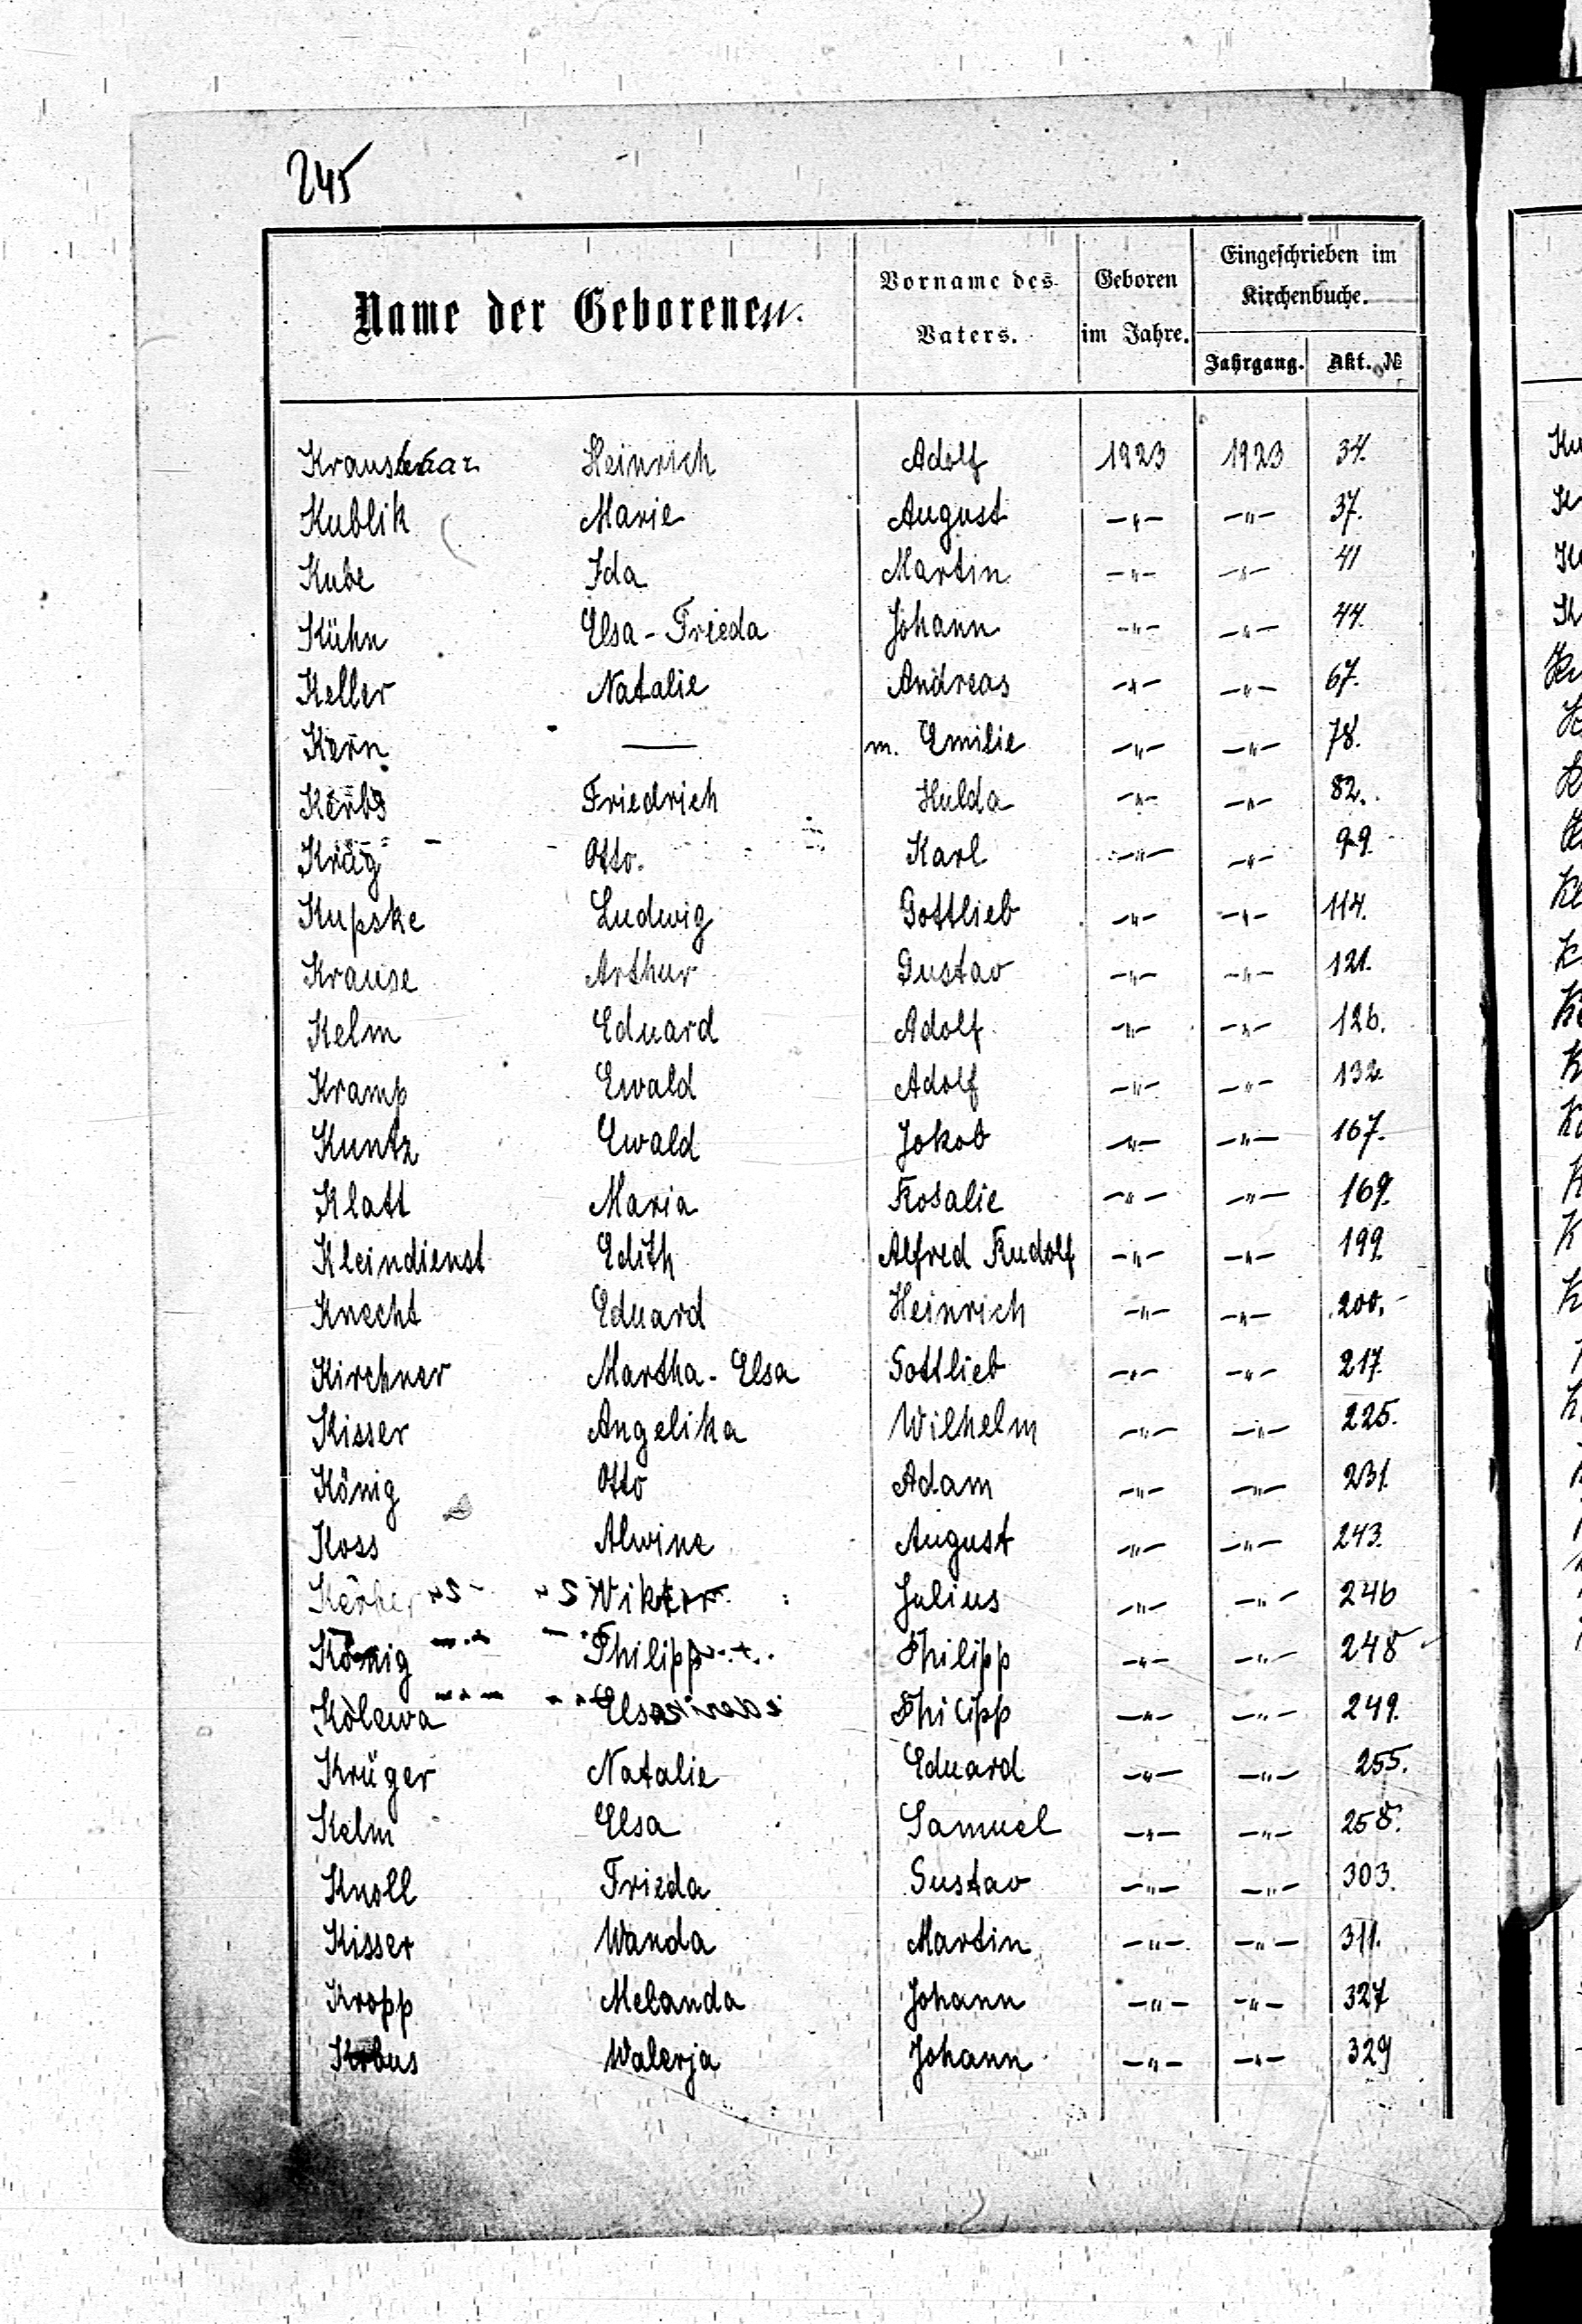 245
Name der Geborenen.
Vorname des Vaters.
Geboren im Jahre.
Eingeschrieben im Kirchenbuche.
Jahrgang. Akt. №
Kraushaar Heinrich Adolf 1923 1923 34.
Kublik Marie August —"— —"— 37.
Kube Ida Martin —"— —"— 41
Kühn Elsa - Frieda Johann —"— —"— 44.
Keller Natalie Andreas —"— —"— 67.
Kern — m. Emilie —"— —"— 78.
Kerbs Friedrich Hulda —"— —"— 82.
Krüg Otto. Karl —"— —"— 99.
Kupske Ludwig Gottlieb —"— —"— 114.
Krause Arthur Gustav —"— —"— 121.
Kelm Eduard Adolf —"— —"— 126.
Kramp Ewald Adolf —"— —"— 132.
Kuntz Ewald Jokob —"— —"— 167.
Klatt Maria Rosalie —"— —"— 169.
Kleindienst Edith Alfred Rudolf —"— —"— 199.
Knecht Eduard Heinrich —"— —"— 200.
Kirchner Martha - Elsa Gottlieb —"— —"— 217.
Kisser Angelika Wilhelm —"— —"— 225.
König Otto Adam —"— —"— 231.
Koss Alwine August —"— —"— 243.
Wiktor Julius —"— —"— 246
König Philipp Philipp —"— —"— 248
Kolewa Elsa Philipp —"— —"— 249.
Krüger Natalie Eduard —"— —"— 255.
Kelm Elsa Samuel —"— —"— 258.
Knoll Frieda Gustav —"— —"— 303.
Kisser Wanda Martin —"— —"— 311.
Kropp Melanda Johann —"— —"— 327
Walerja Johann —"— —"— 329